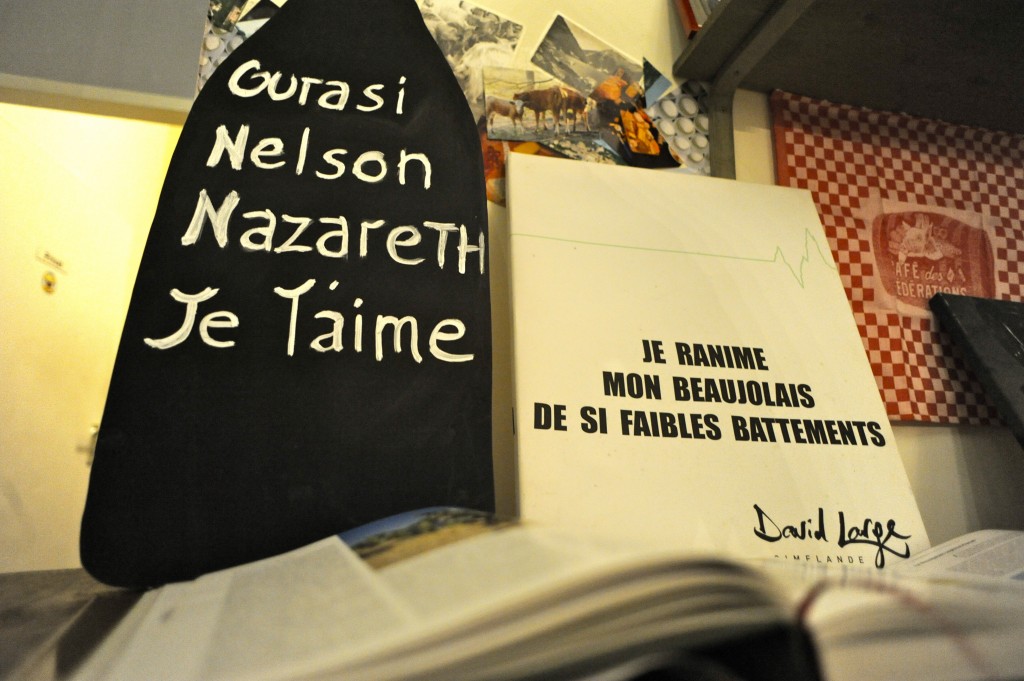 Ourasi
Nelson
Nazareth
Je T'aime
JE RANIME
MON BEAUJOLAIS
DE SI FAIBLES BATTEMENTS
David Large
GIMELANDE
CAFÉ des
FÉDÉRATIONS